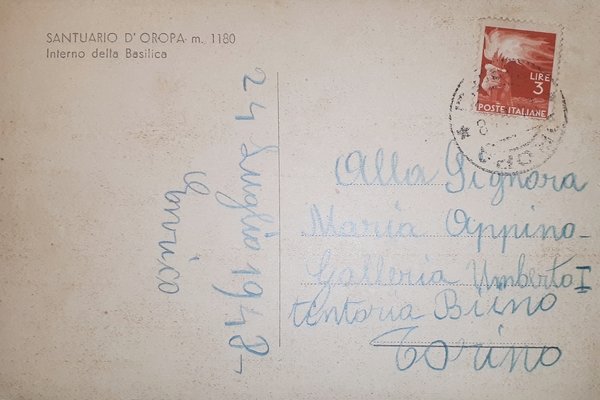 SANTUARIO D'OROPA - m. 1180
Interno della Basilica
LIRE
3
POSTE ITALIANE
24 Luglio 1948-
Enrico
Alla Signora
Maria Appino-
Galleria Umberto I
tentoria Biino
Torino